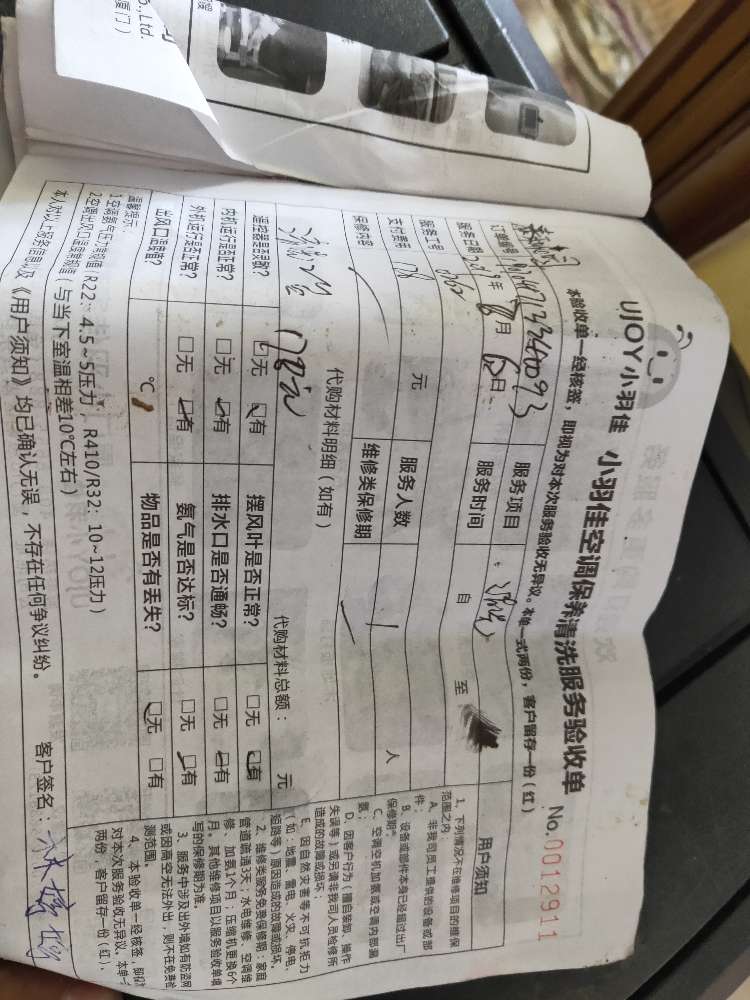 UJOY小羽佳
小羽佳空调保养清洗服务验收单
No.0012911
本验收单一经核签，即视为对本次服务验收无异议。本单一式两份，客户留存一份（红）
订单编号
服务项目
服务日期 年 8月 6日
服务时间 自 至
服务工号
支付费用 78 元
服务人数 1 人
保修内容
维修类保修期
代购材料明细（如有）
代购材料总额： 元
遥控器是否灵敏？ □无 □有
摆风叶是否正常？ □无 □有
内机运行是否正常？ □无 □有
排水口是否通畅？ □无 □有
外机运行是否正常？ □无 □有
氨气是否达标？ □无 □有
出风口温度？ ℃
物品是否有丢失？ □无 □有
用户须知
1、下列情况不在维修项目的维保范围之内：
A、非我司员工提供的设备或部件；
B、设备或部件本身已经超过出厂保修期；
C、空调空机加氨或空调内部漏氨；
D、因客户行为（擅自装卸、操作失误等）或另请非我司人员检修所造成的故障或损坏；
E、因自然灾害等不可抗拒力（如：地震、雷电、火灾、停电、短路等）原因造成的故障或损坏。
2、维修类服务免费保修期：家庭管道疏通3天；水电维修、空调维修、加氨1个月，压缩机更换6个月，其他维修项目以服务验收单填写的保修期为准。
3、服务中涉及出外墙如有防盗网或因高空无法外出，则不在免费检测范围。
4、本验收单一经核签，即视为对本次服务验收无异议。本单一式两份，客户留存一份（红）。
温馨提示：
1.空调氨气压力常规值（R22：4.5~5压力，R410/R32：10~12压力）
2.空调出风口温度常规值（与当下室温相差10℃左右）
本人对以上服务信息及《用户须知》均已确认无误，不存在任何争议纠纷。
客户签名：